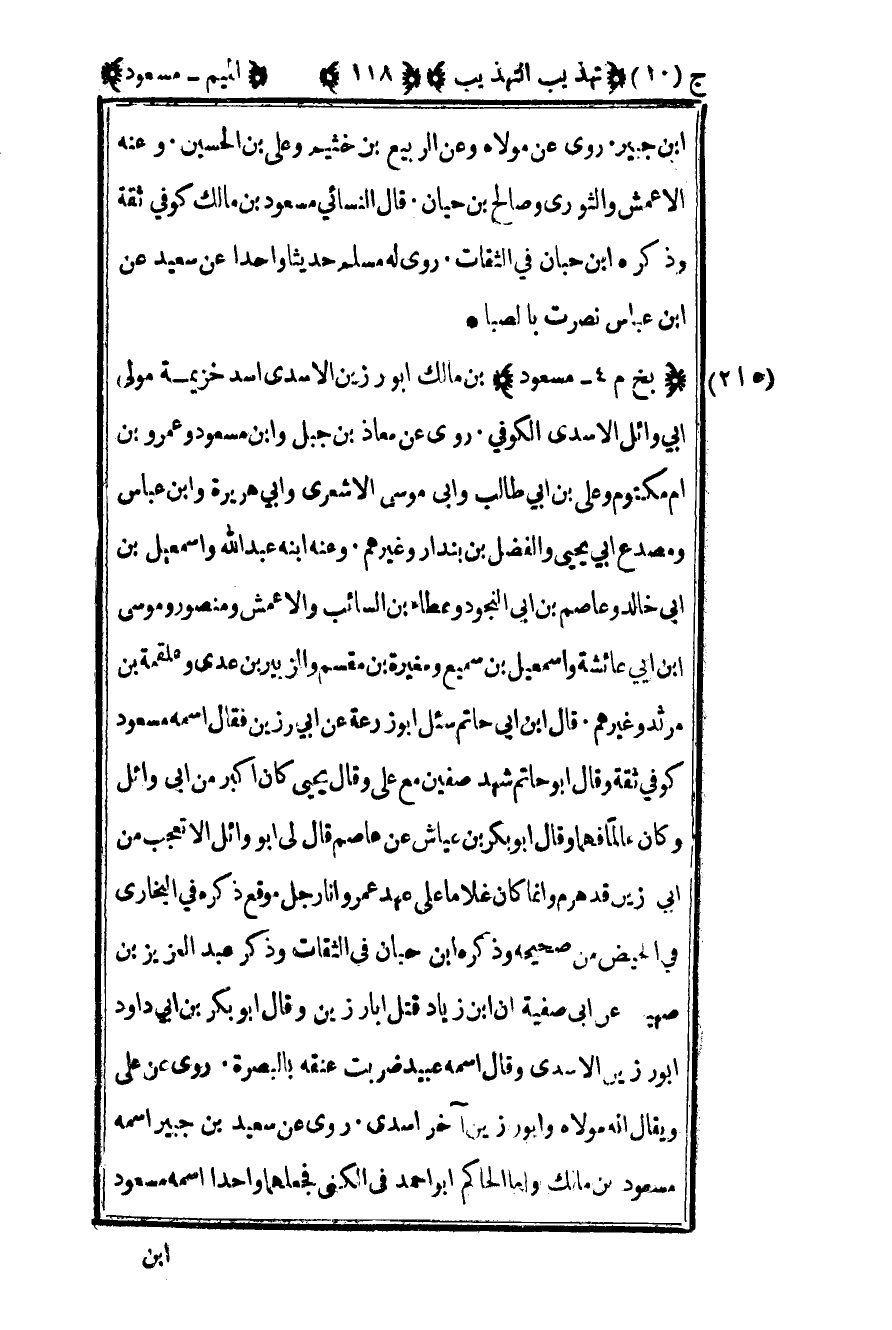 ج (١٠) ﴿ تهذيب التهذيب ﴾ ﴿ ١١٨ ﴾ ﴿ الميم ـ مسعود ﴾
ابن جبير٠ روى عن مولاه وعن الربيع بن خثيم وعلى بن الحسين ٠ وعنه
الاعمش والثورى وصالح بن حيان ٠ قال النسائي مسعود بن مالك كوفي ثقة
وذكره ابن حبان في الثقات ٠ روى له مسلم حديثا واحدا عن سعيد عن
ابن عباس نصرت بالصبا ٠
(٢١٥) ﴿ بخ م ٤ ـ مسعود ﴾ بن مالك ابو رزين الاسدى اسد خزيمة مولى
ابي وائل الاسدى الكوفي ٠ روى عن معاذ بن جبل وابن مسعود وعمرو بن
ام مكتوم وعلى بن ابي طالب وابى موسى الاشعرى وابي هريرة وابن عباس
ومصدع ابي يحيى والفضل بن بندار وغيرهم ٠ وعنه ابنه عبد الله واسمعيل بن
ابى خالد وعاصم بن ابى النجود وعطاء بن السائب والاعمش ومنصور وموسى
ابن ابي عائشة واسمعيل بن سميع ومغيرة بن مقسم والزبير بن عدى وعلقمة بن
مرثد وغيرهم ٠ قال ابن ابي حاتم سئل ابو زرعة عن ابي رزين فقال اسمه مسعود
كوفي ثقة وقال ابو حاتم شهد صفين مع على وقال يحيى كان اكبر من ابى وائل
وكان عالمًا فهما وقال ابو بكر بن عياش عن عاصم قال لى ابو وائل الا تعجب من
ابي رزين قد هرم وانما كان غلاما على عهد عمر وانا رجل موقع ذكره في البخارى
في الحيض من صحيحه وذكره ابن حبان فى الثقات وذكر عبد العزيز بن
صهيب عن ابى صفية ان ابن زياد قتل ابا رزين وقال ابو بكر بن ابي داود
ابو رزين الاسدى وقال اسمه عبيد ضربت عنقه بالبصرة ٠ روى عن على
ويقال انه مولاه وابو رزين آخر اسدى ٠ روى عن سعيد بن جبير اسمه
مسعود بن مالك واما الحاكم ابو احمد فى الكنى فجعلهما واحدا اسمه مسعود
ابن